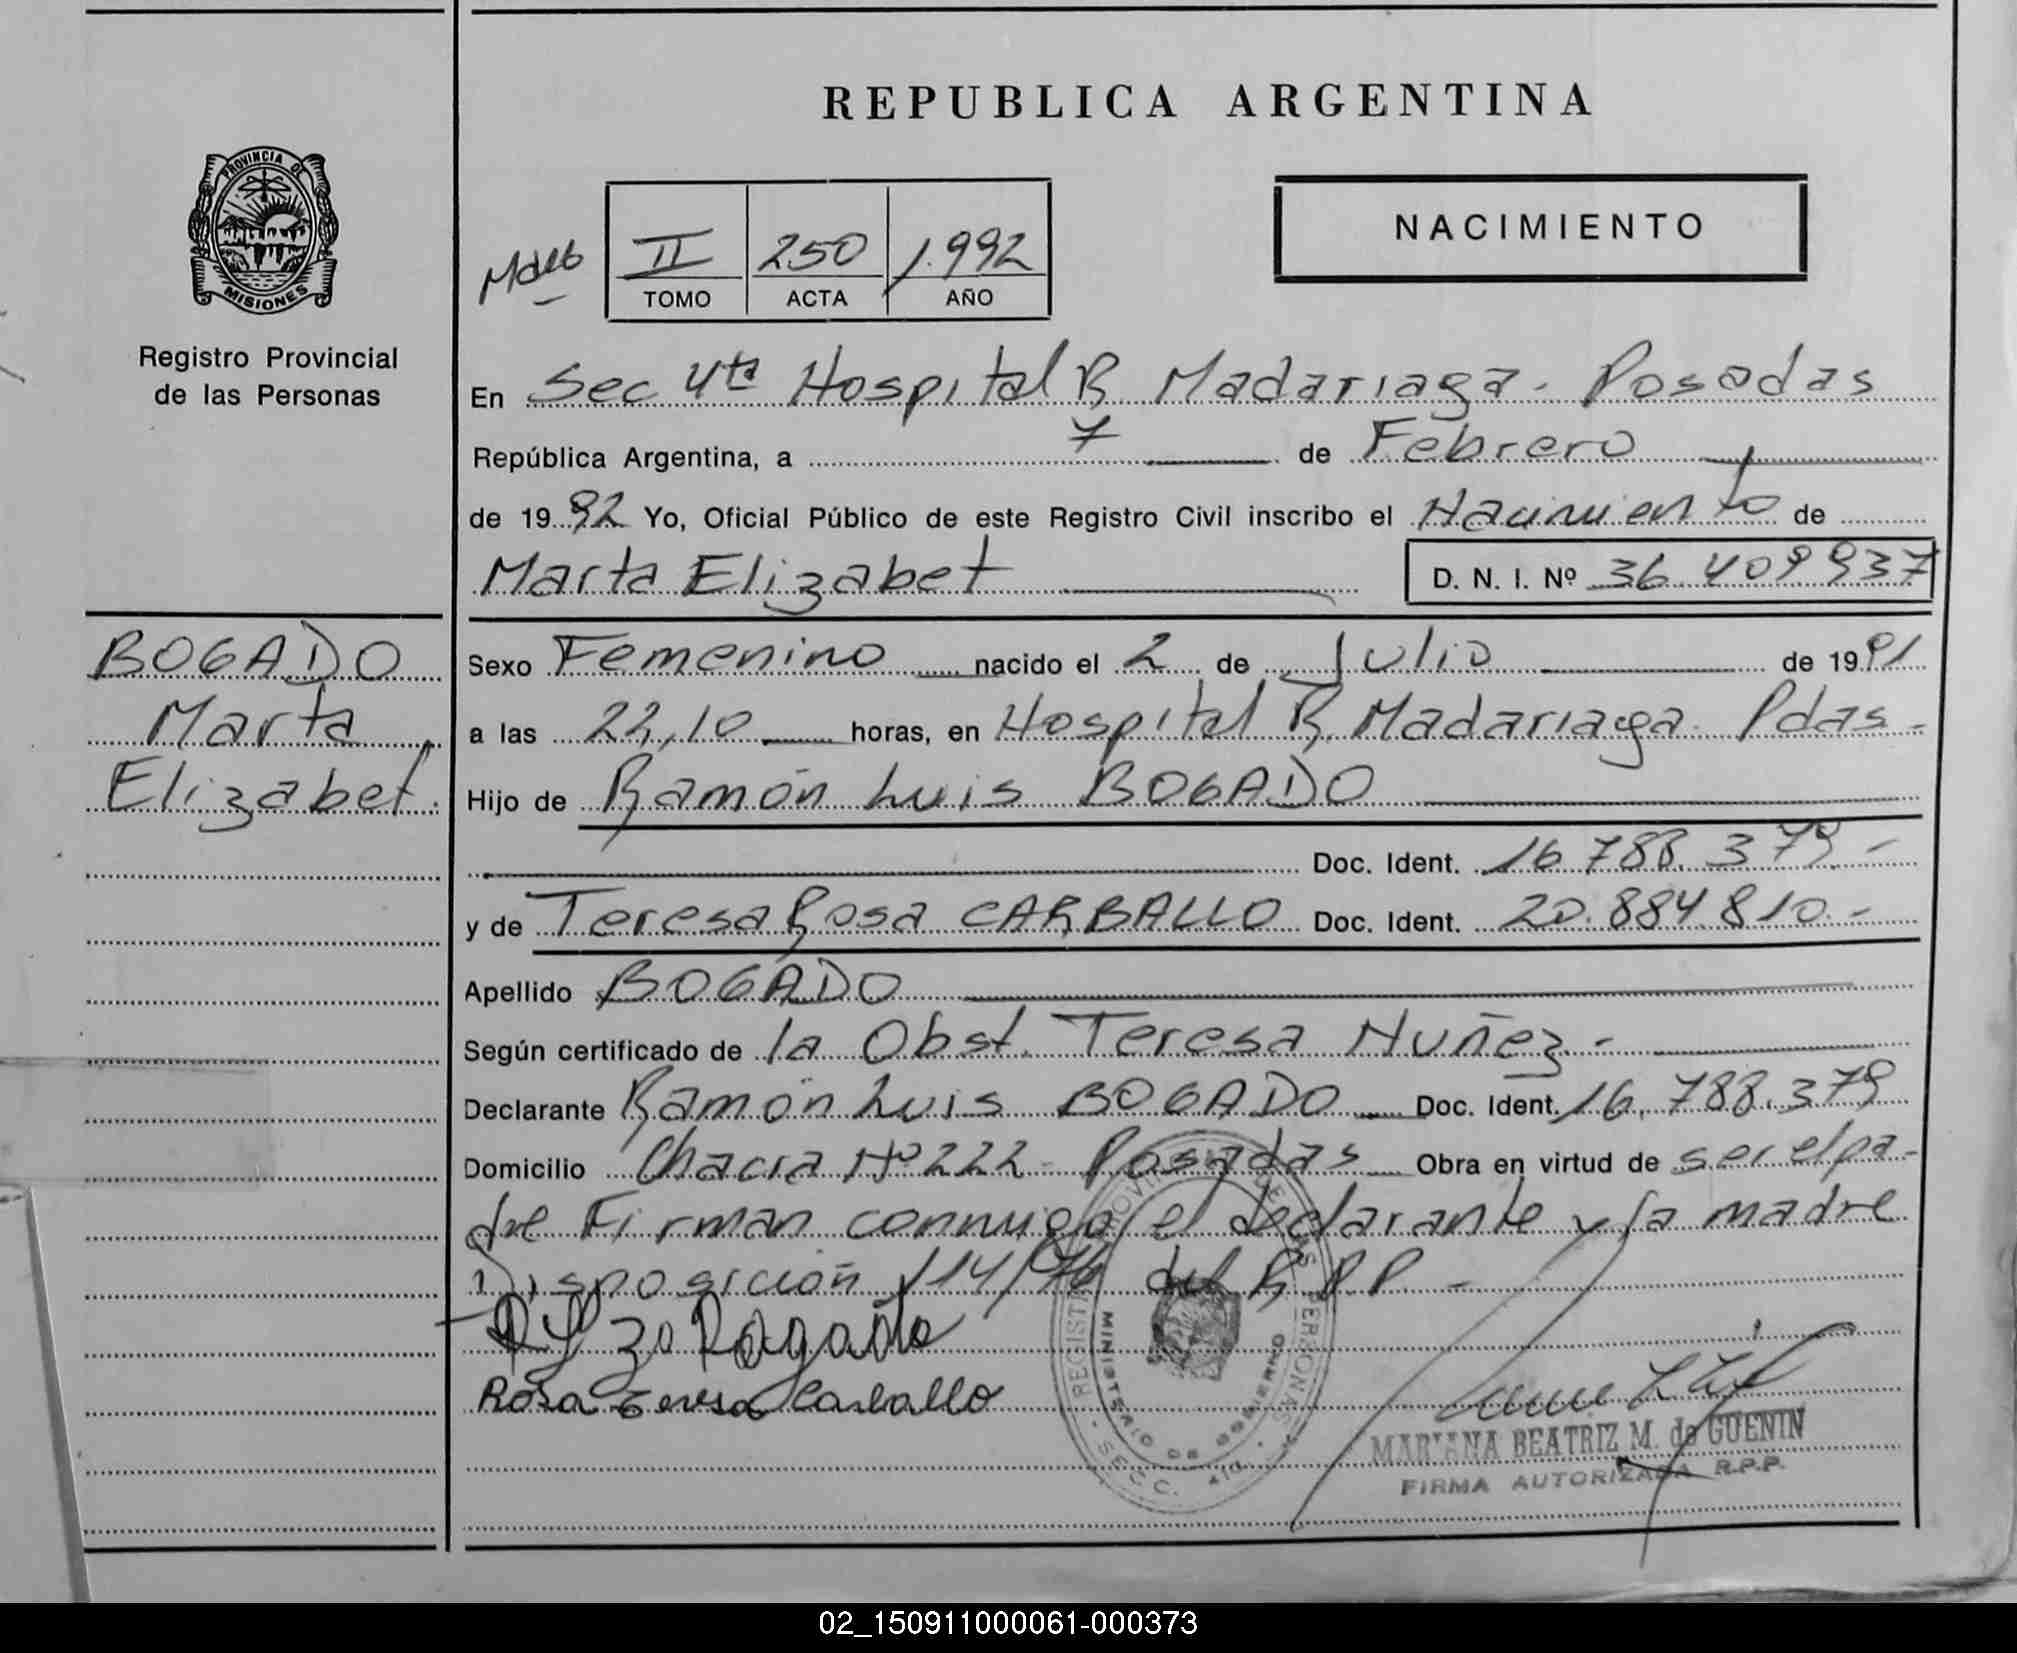 REPUBLICA ARGENTINA
PROVINCIA DE
MISIONES
Registro Provincial
de las Personas
II 250 1.992
TOMO ACTA AÑO
NACIMIENTO
En Sec 4ta Hospital R Madariaga - Posadas
República Argentina, a 7 de Febrero
de 1992 Yo, Oficial Público de este Registro Civil inscribo el Nacimiento de
Marta Elizabet D. N. I. Nº 36 409 937
BOGADO
Marta
Elizabet.
Sexo Femenino nacido el 2 de Julio de 1991
a las 22,10 horas, en Hospital R. Madariaga. Pdas -
Hijo de Ramón Luis BOGADO
Doc. Ident. 16 788. 379. -
y de Teresa Rosa CARBALLO Doc. Ident. 20.884.810. -
Apellido BOGADO
Según certificado de la Obst. Teresa Nuñez -
Declarante Ramón Luis BOGADO Doc. Ident. 16. 788. 379
Domicilio Chacra Nº 222 - Posadas Obra en virtud de ser el pa-
dre Firman conmigo el declarante y la madre
Disposición 114/76 del R P P -
Rosa Teresa Carballo
REGISTRO PROVINCIAL DE LAS PERSONAS
MINISTERIO DE GOBIERNO
SECC. 4ta.
MARIANA BEATRIZ M. de GUENIN
FIRMA AUTORIZADA R.P.P.
02_150911000061-000373